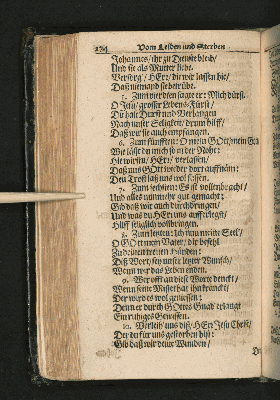 174 Vom Leiden und Sterben
Johannes/ ihr zu Dienste bleib/
Und sie als Mutter liebe.
Versorg/ HErr/ die wir lassen hie/
Daß niemand sie betrübe.
5. Zum vierdten sagte er: Mich dürst.
O Jesu/ grosser Lebens-Fürst/
Du hast Durst und Verlangen
Nach unser Seligkeit/ drum hilff/
Daß wir sie auch empfangen.
6. Zum fünfften: O mein GOtt/mein
Wie läst du mich so in der Noht:
Hie wirstu/ HErr/ verlassen/
Daß uns GOtt wieder dort auffnäm:
Den Trost laß uns wol fassen.
7. Zum sechsten: Es ist vollenbracht/
Und alles nunmehr gut gemacht:
Gib daß wir auch durchdringen/
Und was du HErr uns aufferlegst/
Hilff seliglich vollbringen.
8. Zum letzten: Ich nun meine Seel/
O GOtt mein Vater/ dir befehl
Zu deinen treuen Händen:
Diß Wort sey unser letzter Wunsch/
Wenn wir das Leben enden.
9. Wer offt an diese Worte denckt/
Wenn seine Missethat ihn kränckt/
Der wird es wol geniessen:
Denn er durch GOttes Gnad erlangt
Ein ruhiges Gewissen.
10. Verleih uns diß/ HErr Jesu Christ/
Der du für uns gestorben bist:
Gib daß wir deine Wunden/